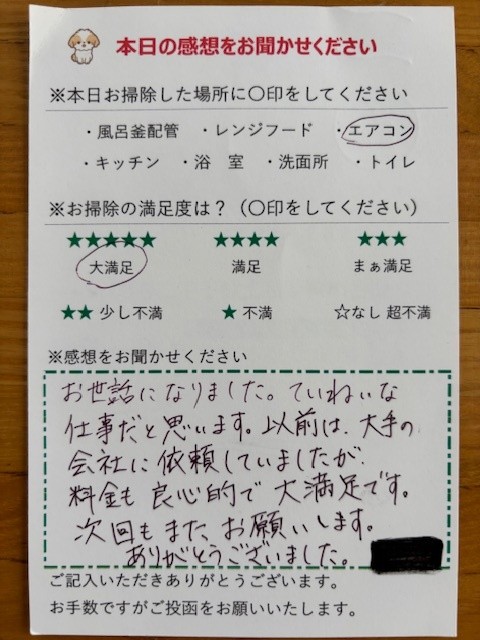 本日の感想をお聞かせください
※本日お掃除した場所に〇印をしてください
・風呂釜配管 ・レンジフード ・エアコン
・キッチン ・浴 室 ・洗面所 ・トイレ
※お掃除の満足度は？（〇印をしてください）
★★★★★ ★★★★ ★★★
大満足 満足 まぁ満足
★★ 少し不満 ★ 不満 ☆なし 超不満
※感想をお聞かせください
お世話になりました。ていねいな
仕事だと思います。以前は、大手の
会社に依頼していましたが、
料金も良心的で大満足です。
次回もまた、お願いします。
ありがとうございました。
ご記入いただきありがとうございます。
お手数ですがご投函をお願いいたします。